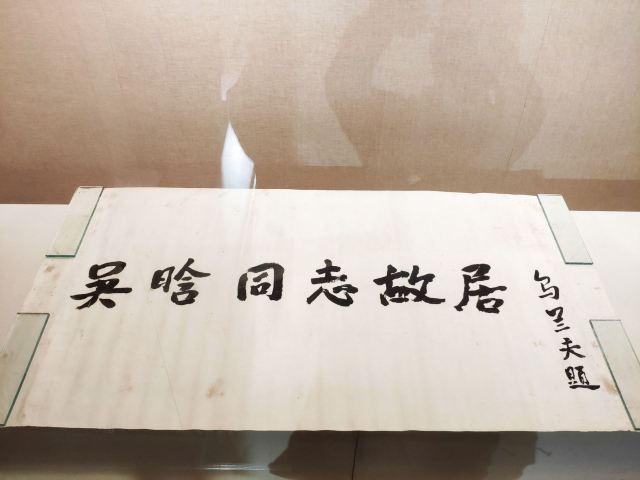 吴晗同志故居
乌兰夫题